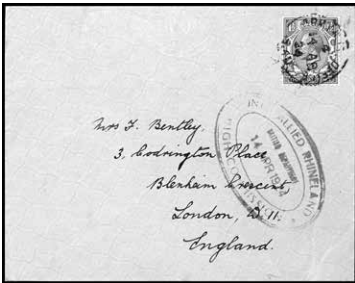 Mrs F. Bentley,
3, Codrington Place,
Blenheim Crescent,
London, W.
England.
INTER ALLIED RHINELAND HIGH COMMISSION
14 APR 192
14 AP